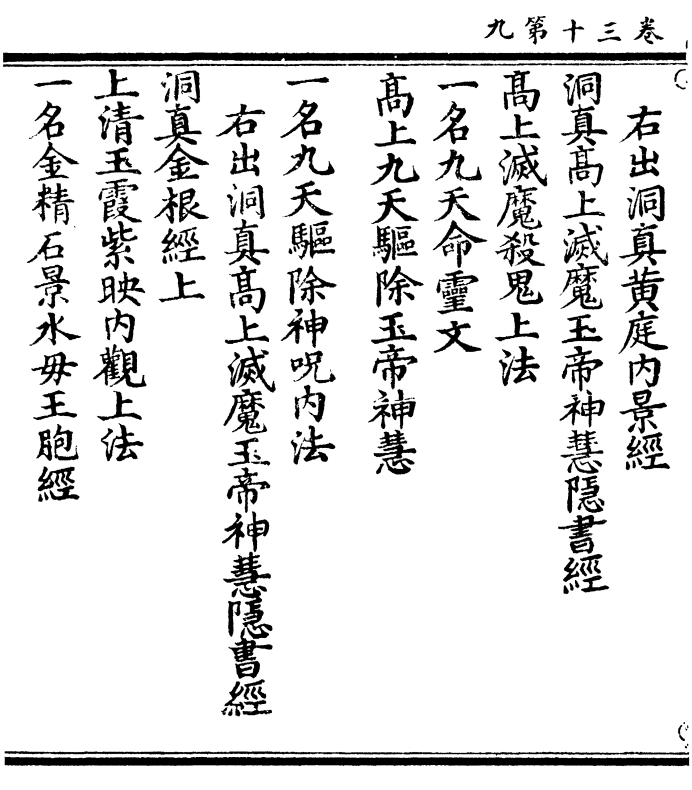 卷三十第九
右出洞真黄庭内景經
洞真髙上滅魔玉帝神慧隱書經
髙上滅魔殺鬼上法
一名九天命靈文
髙上九天驅除玉帝神慧
一名九天驅除神呪内法
右出洞真髙上滅魔玉帝神慧隱書經
洞真金根經上
上清玉霞紫映内觀上法
一名金精石景水毋王胞經